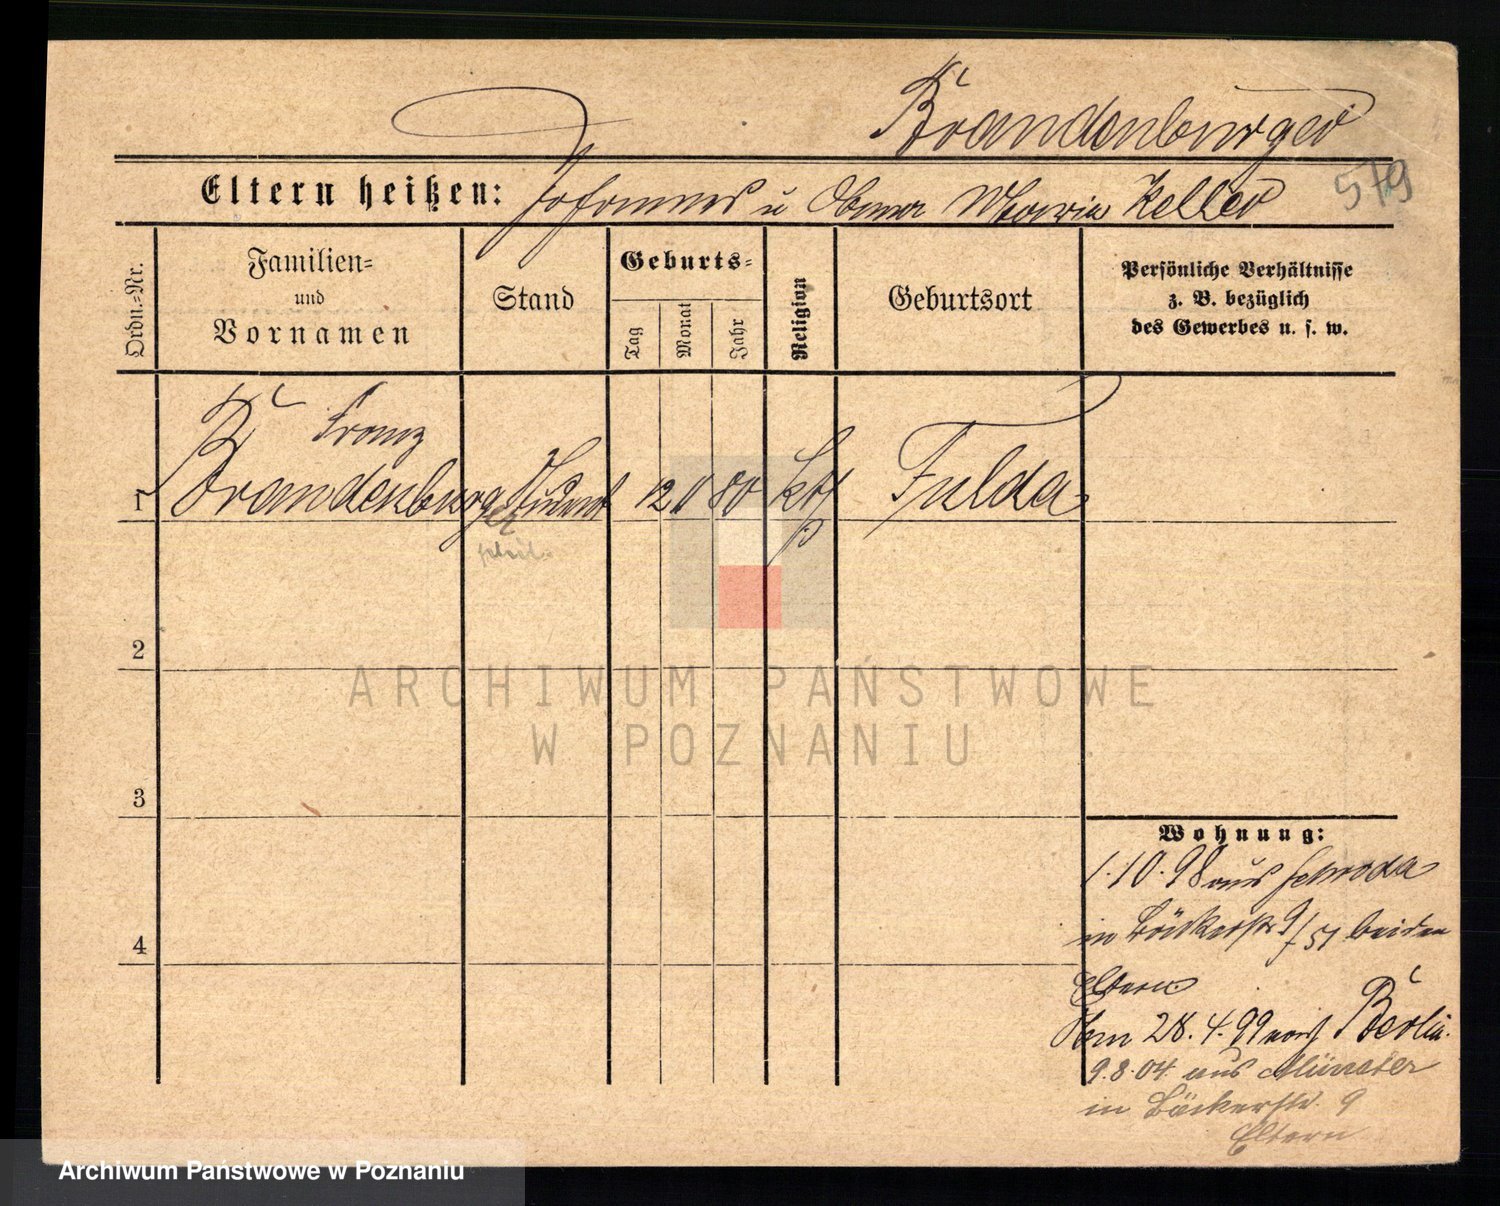 Brandenburger
Eltern heißen: Johannes u Maria Keller
579
Ordn.=Nr.
Familien=
und
Vornamen
Stand
Geburts=
Tag
Monat
Jahr
Religion
Geburtsort
Persönliche Verhältnisse
z. B. bezüglich
des Gewerbes u. s. w.
Franz
1 Brandenburger Student 12 80 kth Fulda
phil.
2
ARCHIWUM PAŃSTWOWE
W POZNANIU
3
Wohnung:
1.10.98 aus Schroda
in Bäckerstr 9/ 51 bei den
4
Eltern
28.4.99 nach Berlin.
9.8.04 aus Münster
in Bäckerstr. 9
Eltern
Archiwum Państwowe w Poznaniu